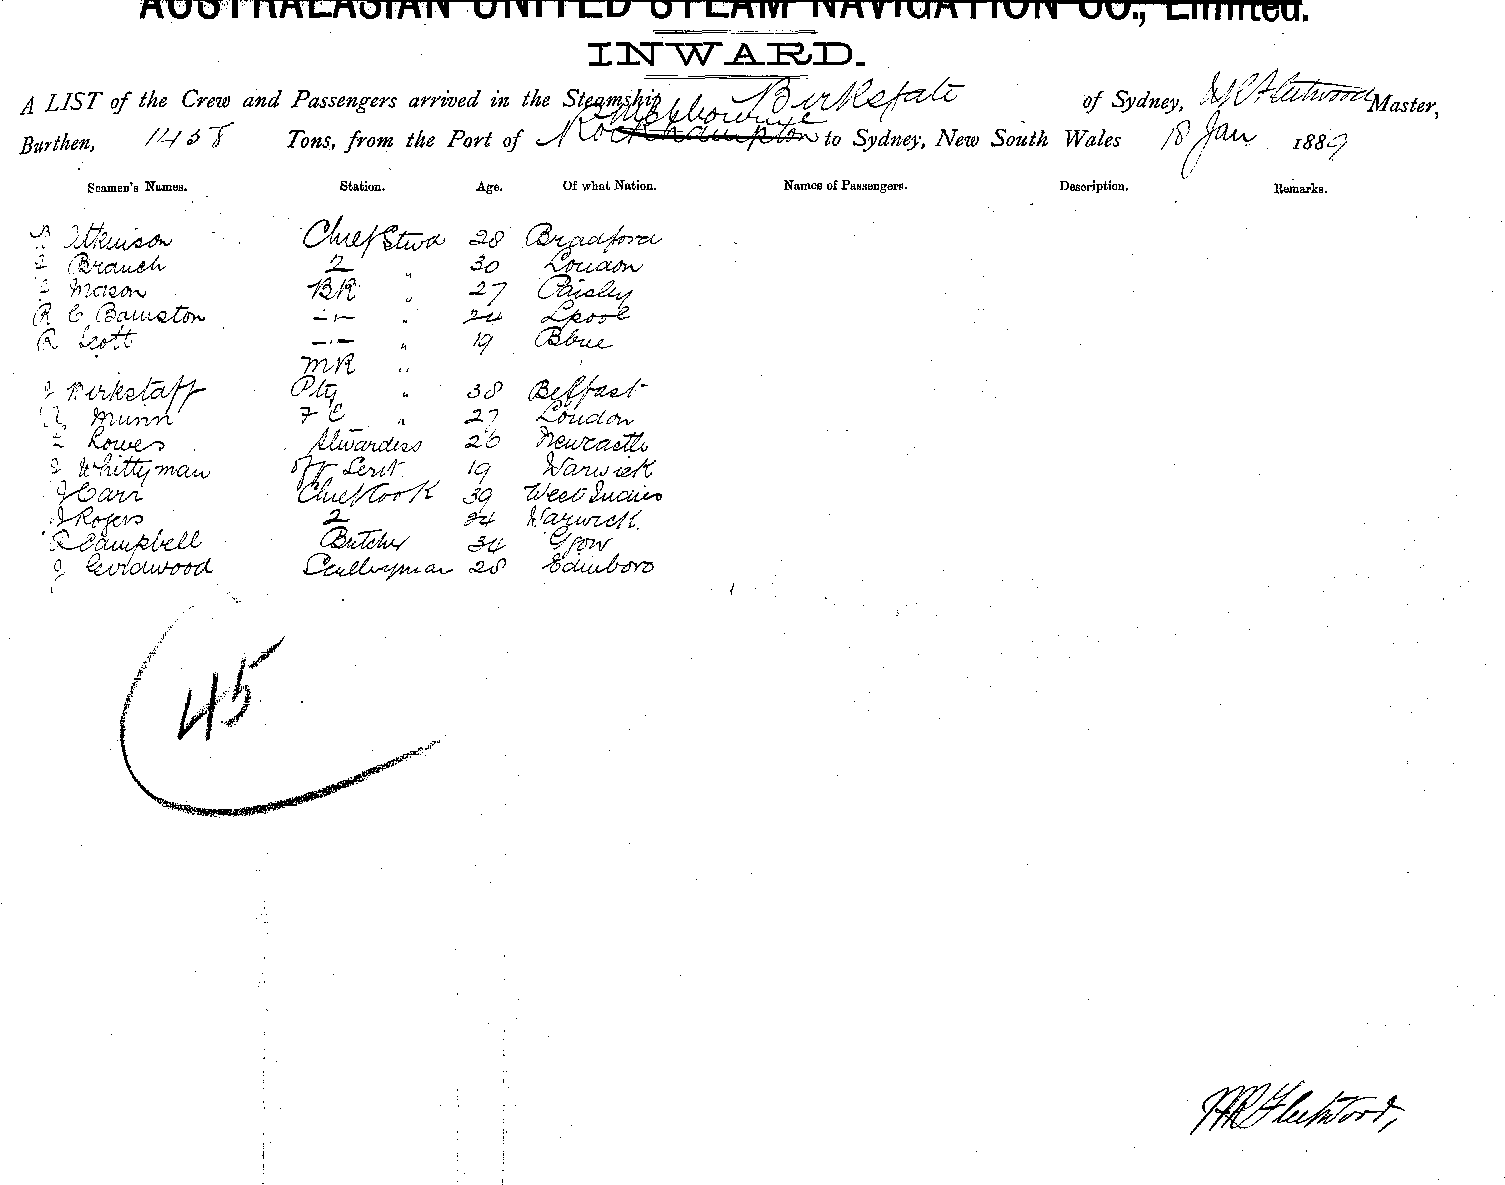 AUSTRALASIAN UNITED STEAM NAVIGATION CO., Limited.
INWARD.
A LIST of the Crew and Passengers arrived in the Steamship Birksgate of Sydney, Fleetwood Master,
Melbourne
Burthen, 1458 Tons, from the Port of Rockhampton to Sydney, New South Wales 18 Jan 1889
Seamen's Names. Station. Age. Of what Nation. Names of Passengers. Description. Remarks.
Atkinson Chief Stwd 28 Bradford
Branch 2 " 30 London
Mason BR " 27 Paisley
R C Bainston -"- " 24 Lpool
R Scott -"- " 19 Bbne
MR "
J Wirkstaff Pty " 38 Belfast
Munn F C " 27 London
Rowes Stwardess 26 Newcastle
Whittyman Off Servt 19 Warwick
J Carr Chief Cook 39 West Indies
J Rogers 2 24 Warwick
R Campbell Butcher 34 Ggow
J Scullryman 28 Edinboro
45
Fleetwood,